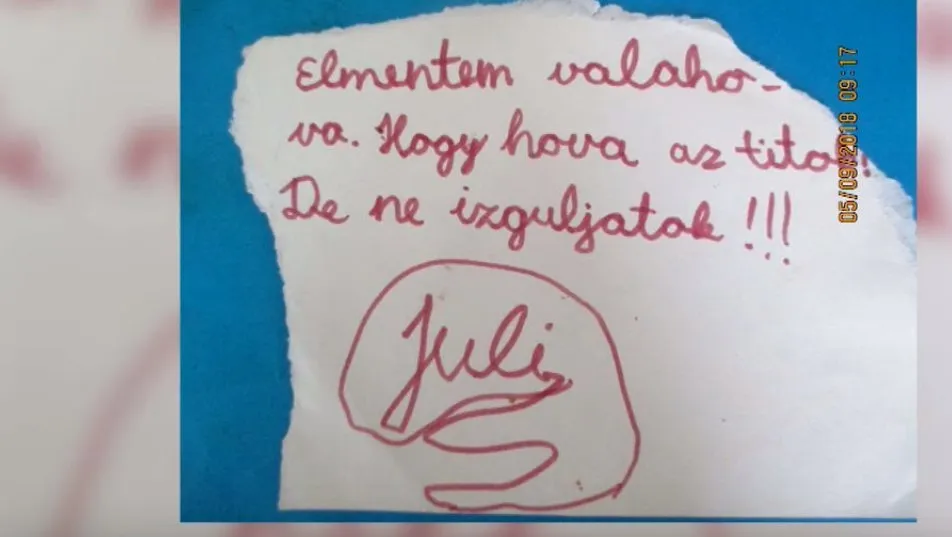 Elmentem valaho-
va. Hogy hova az titok!
De ne izguljatok !!!
Juli
05/09/2018 09:17